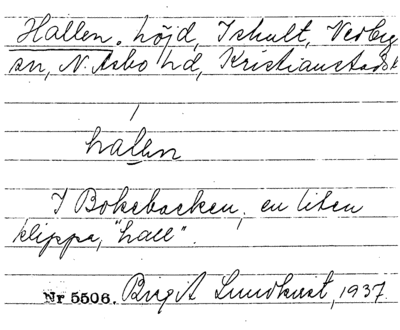 Hallen, höjd, Ishult, Verby
sn, N. Åsbo hd, Kristianstads l.
halen
I Bokebacken, en liten
klippa, "hall".
Nr 5506. Birgit Lundkvist, 1937.